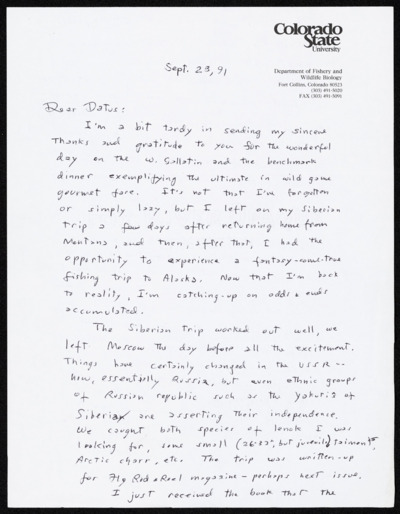 Colorado
State
University
Department of Fishery and
Wildlife Biology
Fort Collins, Colorado 80523
(303) 491-5020
FAX (303) 491-5091
Sept. 23, 91
Dear Datus:
I'm a bit tardy in sending my sincere
thanks and gratitude to you for the wonderful
day on the W. Gallatin and the benchmark
dinner exemplifying the ultimate in wild game
gourmet fare. It's not that I've forgotten
or simply lazy, but I left on my Siberian
trip a few days after returning home from
Montana, and then, after that, I had the
opportunity to experience a fantasy-come-true
fishing trip to Alaska. Now that I'm back
to reality, I'm catching-up on odds & ends
accumulated.
The Siberian trip worked out well, we
left Moscow the day before all the excitement.
Things have certainly changed in the USSR --
now, essentially Russia, but even ethnic groups
of Russian republic such as the Yakuts of
Siberia are asserting their independence.
We caught both species of lenok I was
looking for, some small (26-32", but juvenile) taimens,
Arctic charr, etc. The trip was written-up
for Fly Rod & Reel magazine - perhaps next issue.
I just received the book that the